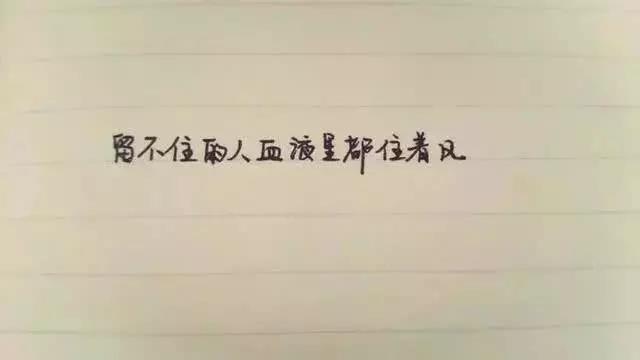 留不住的人血液里都住着风